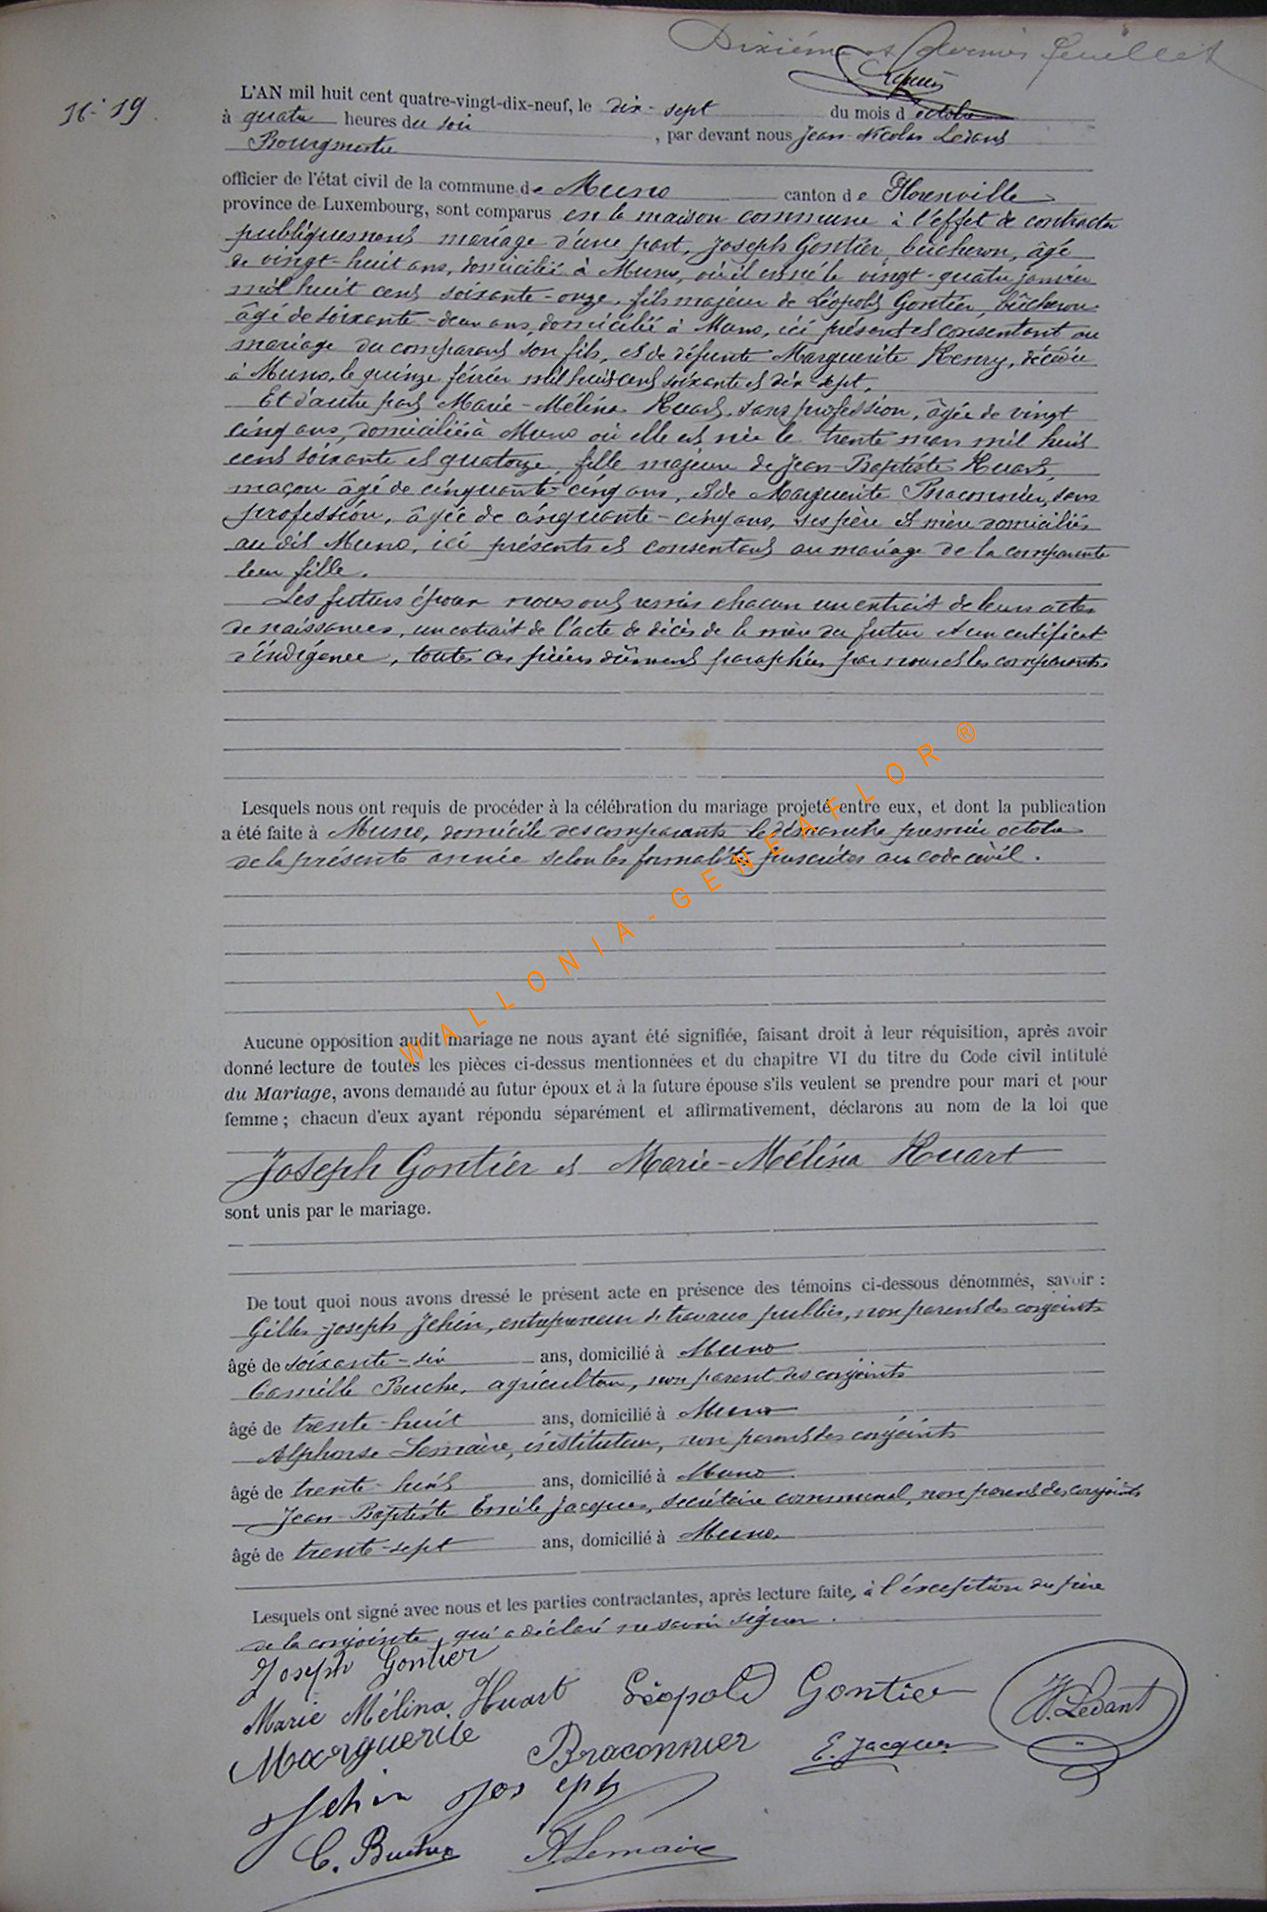 Dixième et dernier feuillet
N° 19.
L'AN mil huit cent quatre-vingt-dix-neuf, le dix-sept du mois d octobre
à quatre heures du soir, par devant nous Jean-Nicolas Ledant
Bourgmestre
officier de l'état civil de la commune de Muno canton de Florenville
province de Luxembourg, sont comparus en la maison commune à l'effet de contracter
publiquement mariage d'une part, Joseph Gontier, bûcheron, âgé
de vingt-huit ans, domicilié à Muno, où il est né le vingt-quatre janvier
mil huit cent soixante-onze, fils majeur de Léopold Gontier, bûcheron
âgé de soixante-deux ans, domicilié à Muno, ici présent et consentant au
mariage du comparant son fils, et de défunte Marguerite Henry, décédée
à Muno, le quinze février mil huit cent soixante et dix-sept.
Et d'autre part Marie-Mélina Huart, sans profession, âgée de vingt
cinq ans, domiciliée à Muno où elle est née le trente mars mil huit
cent soixante et quatorze, fille majeure de Jean-Baptiste Huart,
maçon âgé de cinquante-cinq ans, et de Marguerite Braconnier, sans
profession, âgée de cinquante-cinq ans, ses père et mère domiciliés
au dit Muno, ici présents et consentant au mariage de la comparante
leur fille.
Les futurs époux nous ont remis chacun un extrait de leurs actes
de naissances, un extrait de l'acte de décès de la mère du futur et un certificat
d'indigence, toutes ces pièces dûment paraphées par nous et les comparants.
Lesquels nous ont requis de procéder à la célébration du mariage projeté entre eux, et dont la publication
a été faite à Muno, domicile des comparants le dimanche premier octobre
de la présente année selon les formalités prescrites au code civil.
WALLONIA-GENEAFLOR®
Aucune opposition audit mariage ne nous ayant été signifiée, faisant droit à leur réquisition, après avoir
donné lecture de toutes les pièces ci-dessus mentionnées et du chapitre VI du titre du Code civil intitulé
du Mariage, avons demandé au futur époux et à la future épouse s'ils veulent se prendre pour mari et pour
femme ; chacun d'eux ayant répondu séparément et affirmativement, déclarons au nom de la loi que
Joseph Gontier et Marie-Mélina Huart
sont unis par le mariage.
De tout quoi nous avons dressé le présent acte en présence des témoins ci-dessous dénommés, savoir :
Gilles-Joseph Jehin, entrepreneur de travaux publics, non parent des conjoints
âgé de soixante-six ans, domicilié à Muno
Camille Buche, agriculteur, non parent des conjoints
âgé de trente-huit ans, domicilié à Muno
Alphonse Lemaire, instituteur, non parent des conjoints
âgé de trente-huit ans, domicilié à Muno
Jean-Baptiste Emile Jacques, secrétaire communal, non parent des conjoints
âgé de trente-sept ans, domicilié à Muno.
Lesquels ont signé avec nous et les parties contractantes, après lecture faite, à l'exception du père
de la conjointe, qui a déclaré ne savoir signer.
Joseph Gontier
Marie Mélina Huart Léopold Gontier N. Ledant
Marguerite Braconnier E. Jacques
Jehin Joseph
C. Buche ALemaire